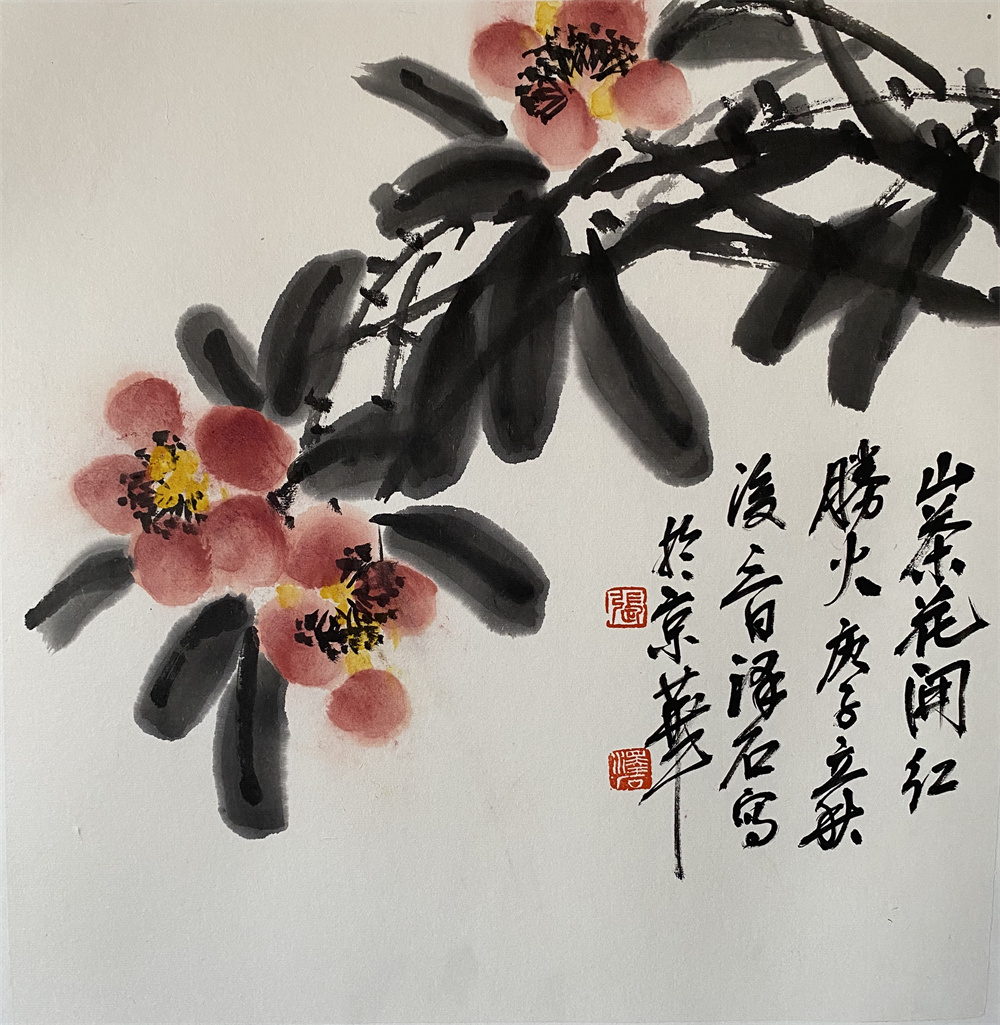 山茶花開紅
勝火 庚子立秋
後三日澤石寫
於京華
張
澤